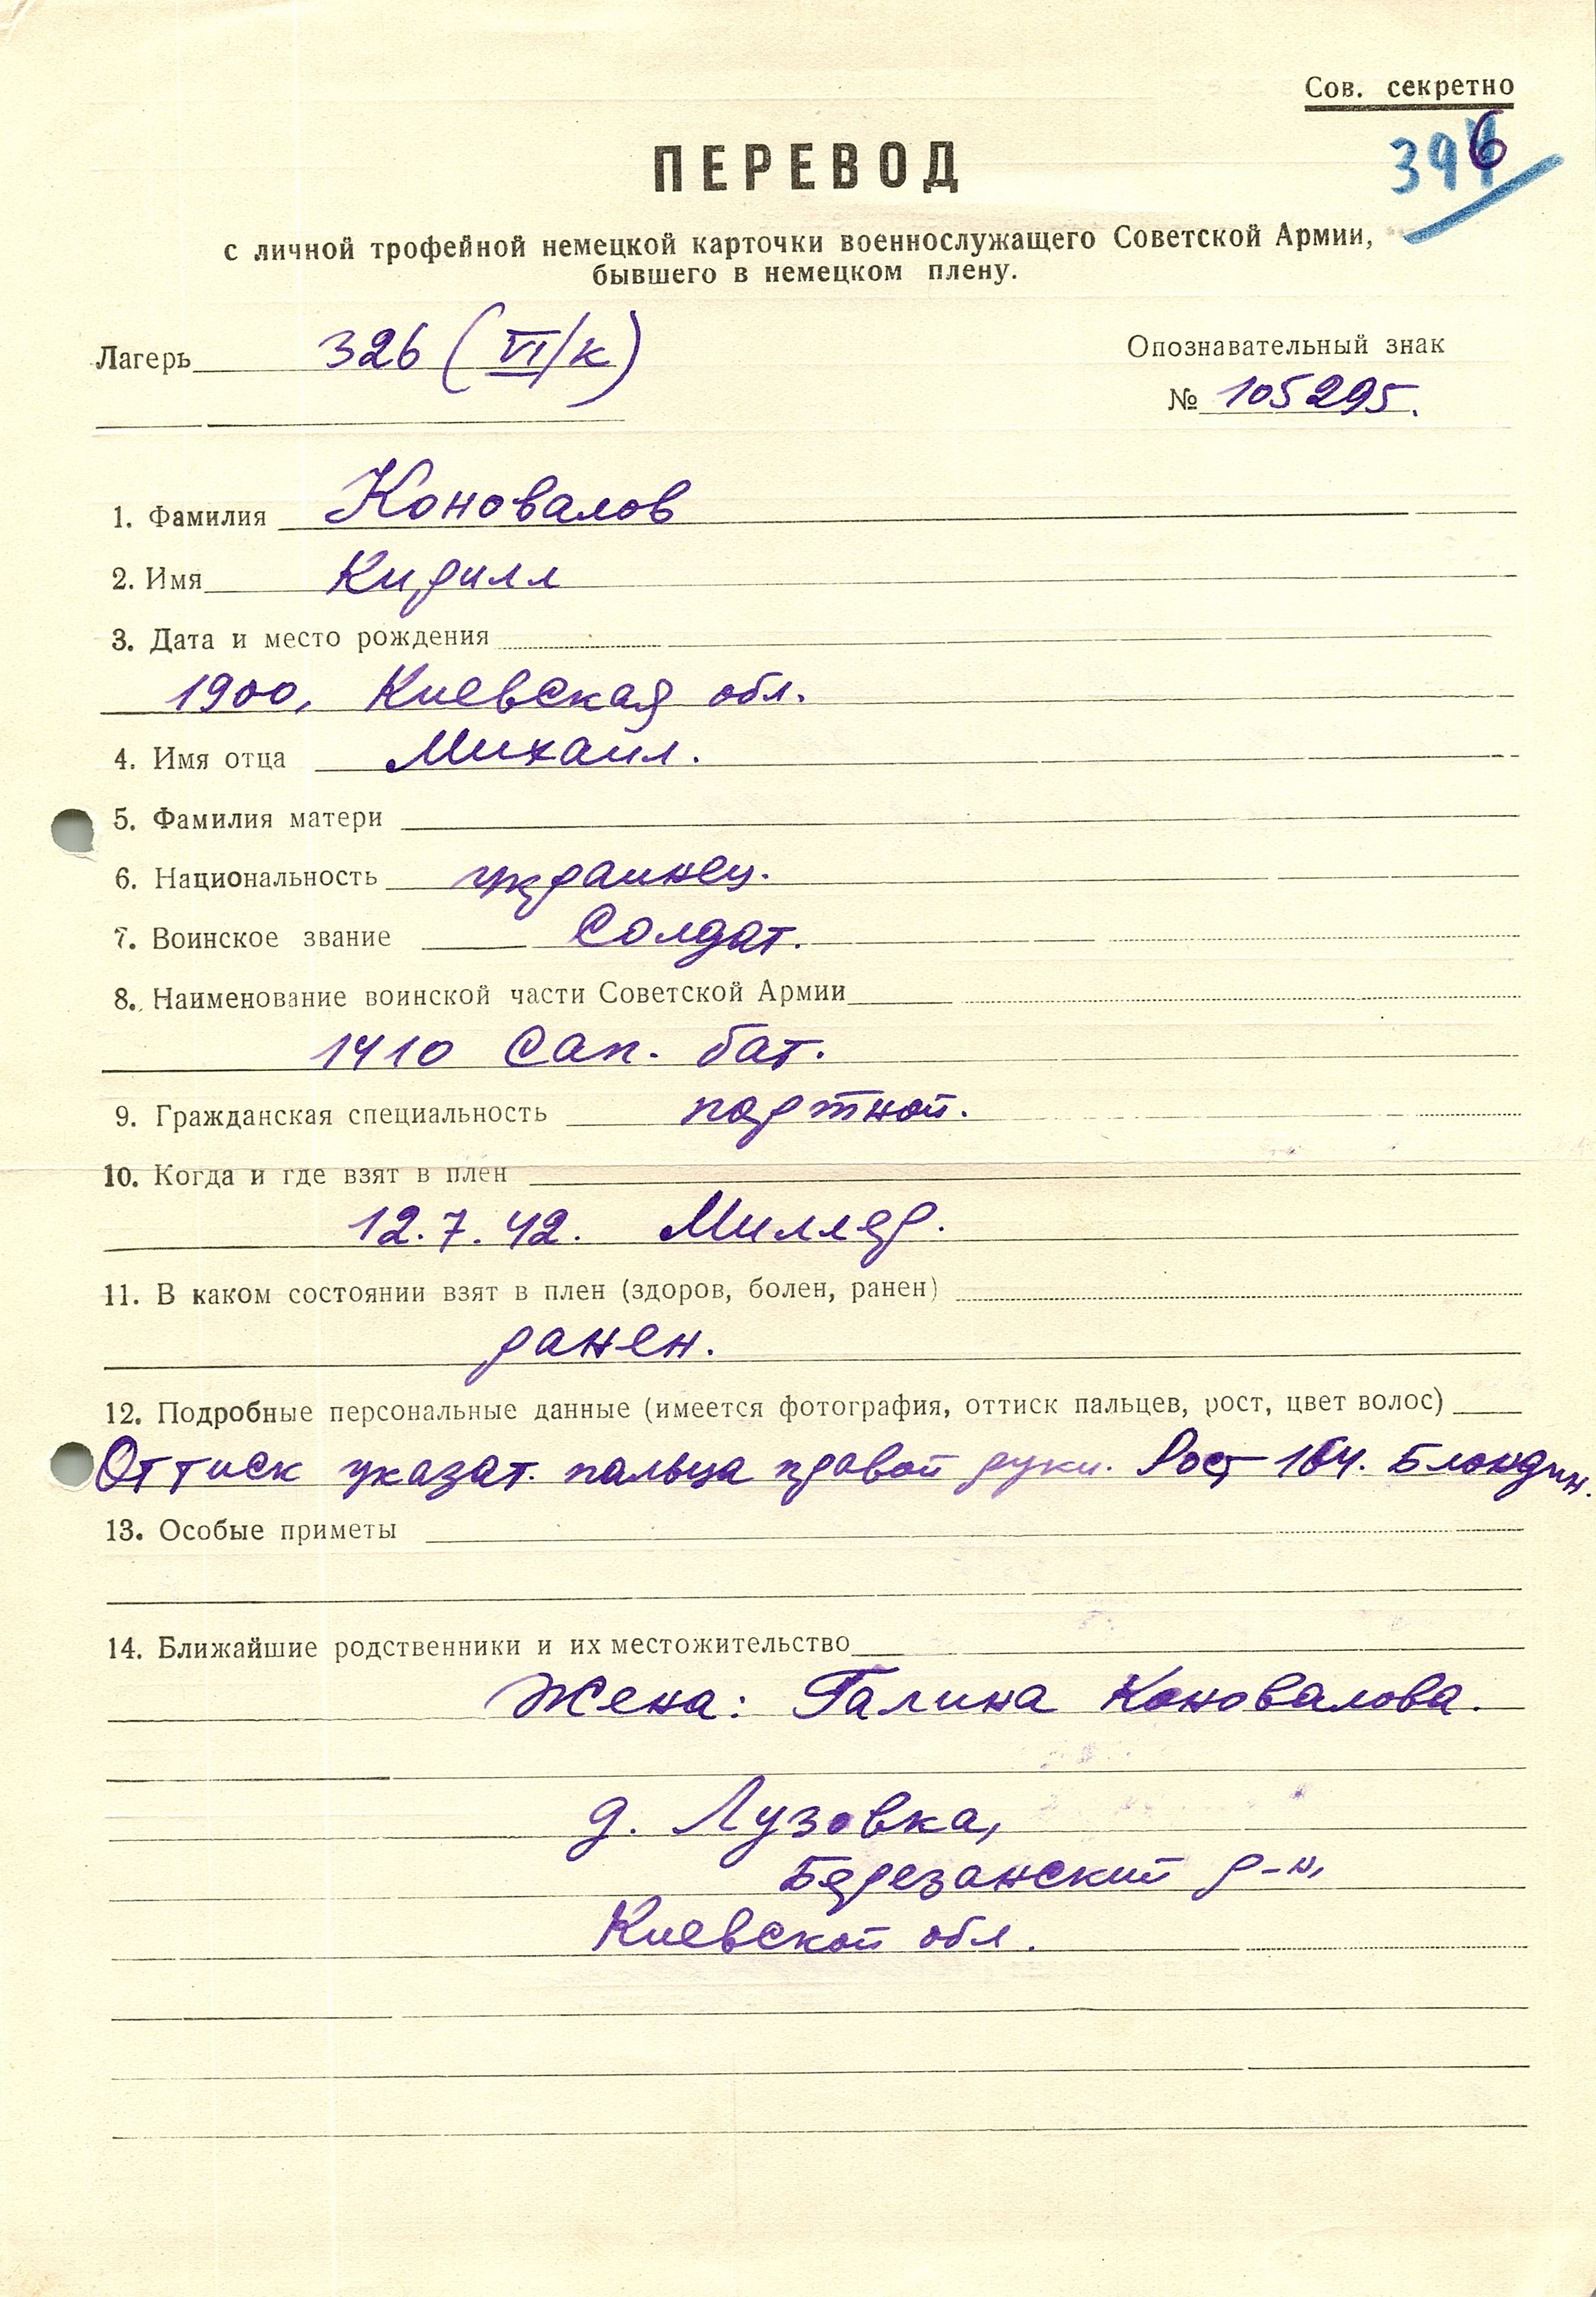 Сов. секретно
396
ПЕРЕВОД
с личной трофейной немецкой карточки военнослужащего Советской Армии,
бывшего в немецком плену.
Лагерь 326 (VI/к)
Опознавательный знак
№ 105295.
1. Фамилия Коновалов
2. Имя Кирилл
3. Дата и место рождения
1900, Киевская обл.
4. Имя отца Михаил.
5. Фамилия матери
6. Национальность украинец.
7. Воинское звание Солдат.
8. Наименование воинской части Советской Армии
1410 Сап. бат.
9. Гражданская специальность портной.
10. Когда и где взят в плен
12.7.42. Миллер.
11. В каком состоянии взят в плен (здоров, болен, ранен)
ранен.
12. Подробные персональные данные (имеется фотография, оттиск пальцев, рост, цвет волос)
Оттиск указат. пальца правой руки. Рост 164. Блондин.
13. Особые приметы
14. Ближайшие родственники и их местожительство
Жена: Галина Коновалова.
д. Лузовка,
Березанский р-н,
Киевской обл.